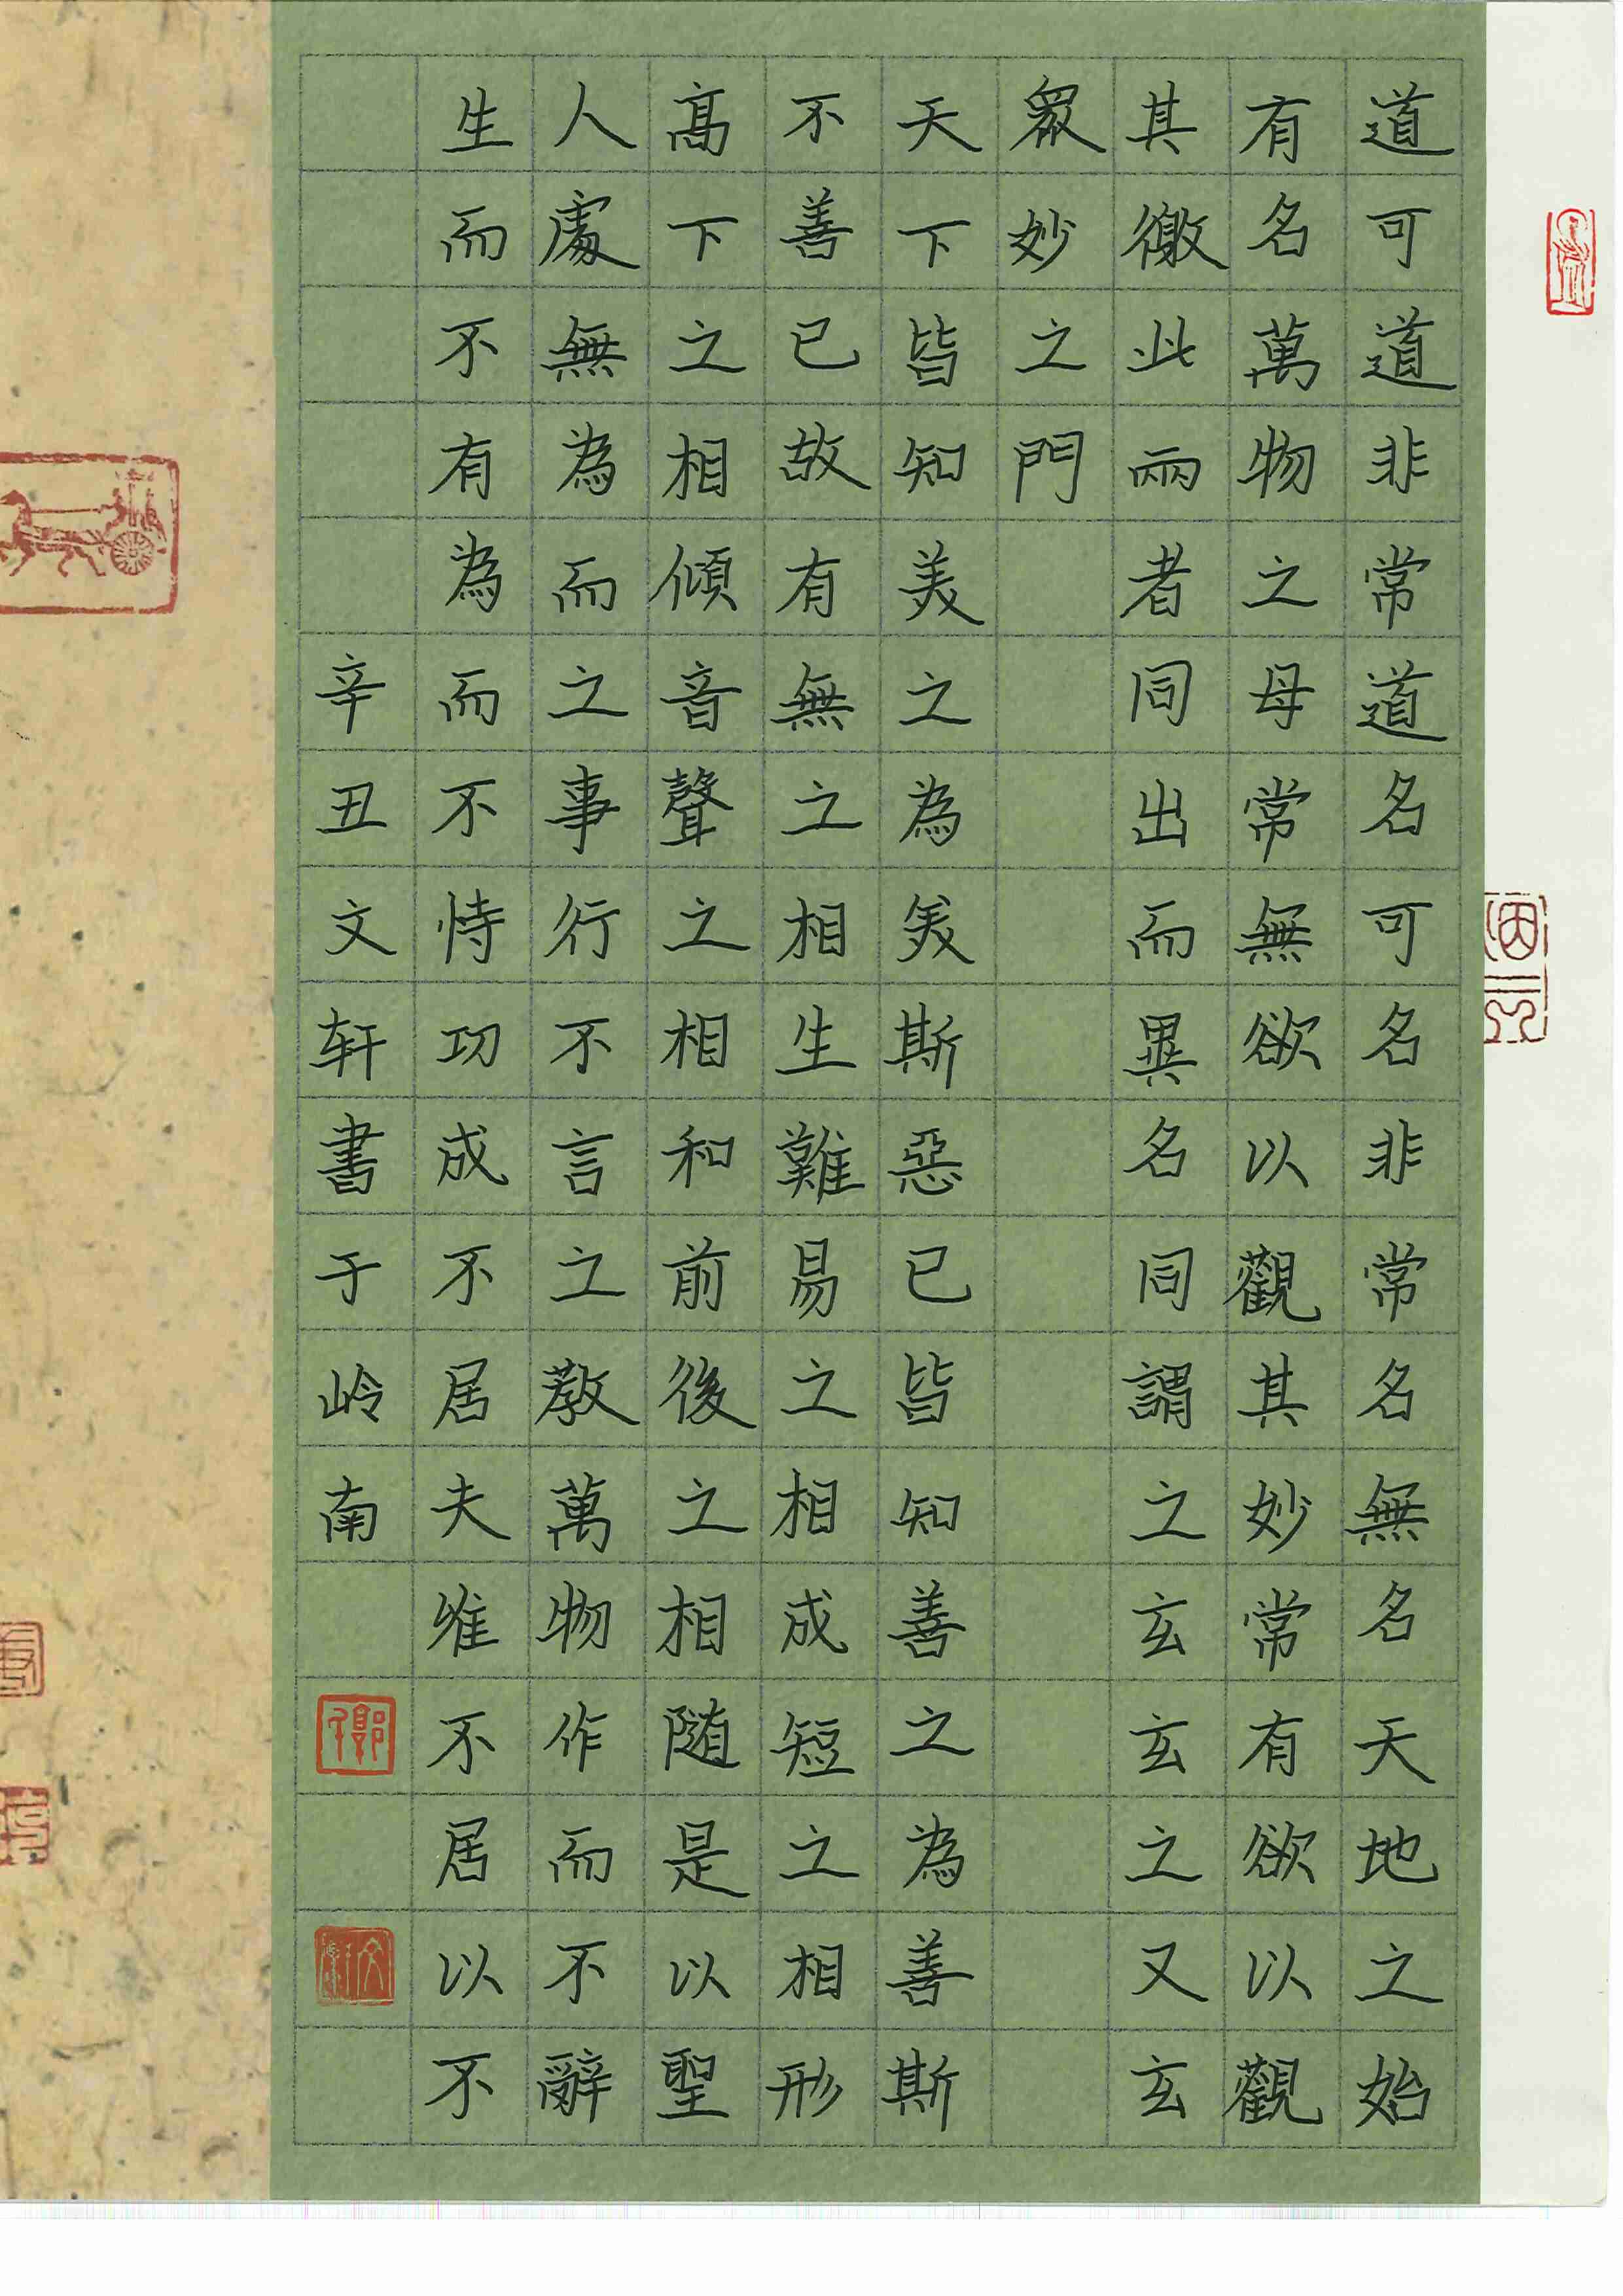 道可道非常道名可名非常名無名天地之始
有名萬物之母常無欲以觀其妙常有欲以觀
其徼此兩者同出而異名同謂之玄玄之又玄
眾妙之門
天下皆知美之為美斯惡已皆知善之為善斯
不善已故有無之相生難易之相成短之相形
高下之相傾音聲之相和前後之相随是以聖
人處無為而之事行不言之教萬物作而不辭
生而不有為而不恃功成不居夫唯不居以不
辛丑文轩書于岭南